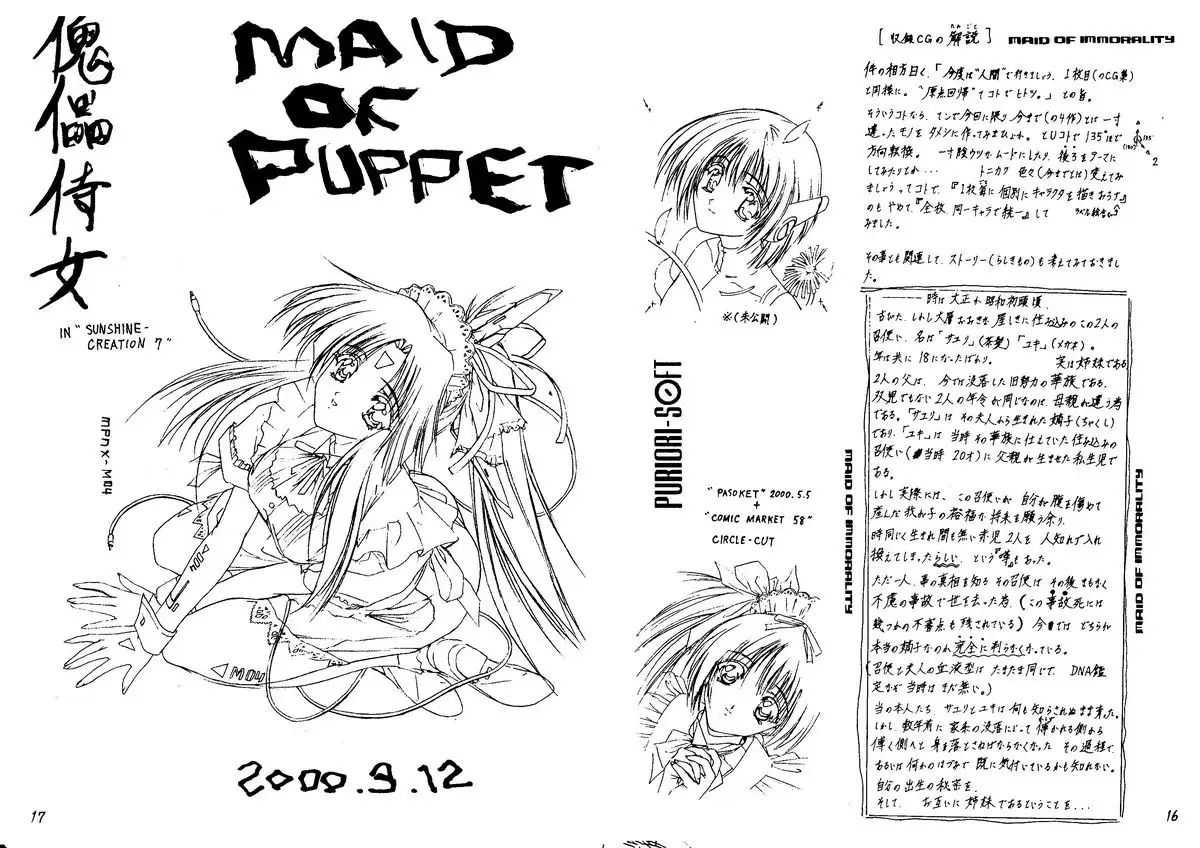 [収録CGの解説]
たんごと
MAID OF IMMORALITY
件の相方曰く、「今度は"人間"で行きましょう、1枚目(のCG集)
と同様に。"原点回帰"てコトでヒトツ。」との旨。
そういうコトなら、てンで今回に限り今まで(の4作)とは一寸
違ったモノをタメシに作ってみまひょれ。とUコトで135°ほど
方向転換。一寸腹ウツな、ムードにしたり、後ろをテーマに
してみたりとか・・・ トニカク色々(今までとは)変えてみ
ましょうてコトで、『1枚毎に個別にキャラクタを描きおろす』
のもやめて、『全枚、同一キャラで統一』して
みました。
その事とも関連して、ストーリー(らしきもの)も考えてみておきまし
た。
時は大正か昭和初頭頃、
古びた、しかし大層おおきな屋しきに住み込みのこの2人の
召使い、名は「サユリ」(本髪)「ユキ」(メガネ)。
年は共に18になったばかり。 実は姉妹である
2人の父は、今では没落した旧勢力の華族である。
双児でもない2人の年令が同じなのは、母親が違う為
である。「サユリ」はその夫人から生まれた嫡子(ちゃくし)
であり、「ユキ」は当時その華族に仕えていた住み込みの
召使い(当時20才)に父親が生ませた私生児で
ある。
しかし実際には、この召使いが自分が腹を傷めて
産んだ我が子の裕福な将来を願う余り、
時同じく生まれ間も無い赤児2人を人知れず入れ
換えてしまったらしい、という『噂』もあった。
ただ一人、事の真相を知るその召使は その後まもなく
不慮の事故で世を去った為、(この事故死には
幾つかの不審点も残されている)今ではどちらが
本当の嫡子なのか完全に判らなくなっている。
(召使と夫人の血液型はたまたま同じで、DNA鑑
定など当時はまだ無い。)
当の本人たち、サユリとユキは何も知らされぬまま育った。
しかし、数年前に家系の没落によって傅かれる側から
傅く側へと身を落とさねばならなくなった その過程で、
あるいは何かのはずみで既に気付いているかも知れない。
自分の出生の秘密を、
そして、お互いに姉妹であるということを・・・
16
※(未公開)
PURIORI-SOFT
"PASOKET" 2000.5.5
+
"COMIC MARKET 58"
CIRCLE-CUT
MAID OF IMMORALITY
MAID OF IMMORALITY
傀儡侍女
MAID
OF
PUPPET
IN "SUNSHINE-
CREATION 7"
MPNX-M04
M004
M04
2000.9.12
17